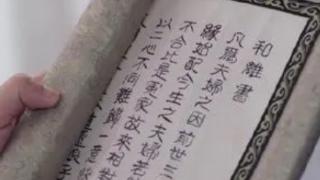 和離書
凡爲夫婦之因前世三
緣始配今生之夫婦若
不合比是寃家故來相對
以二心不同難歸一意